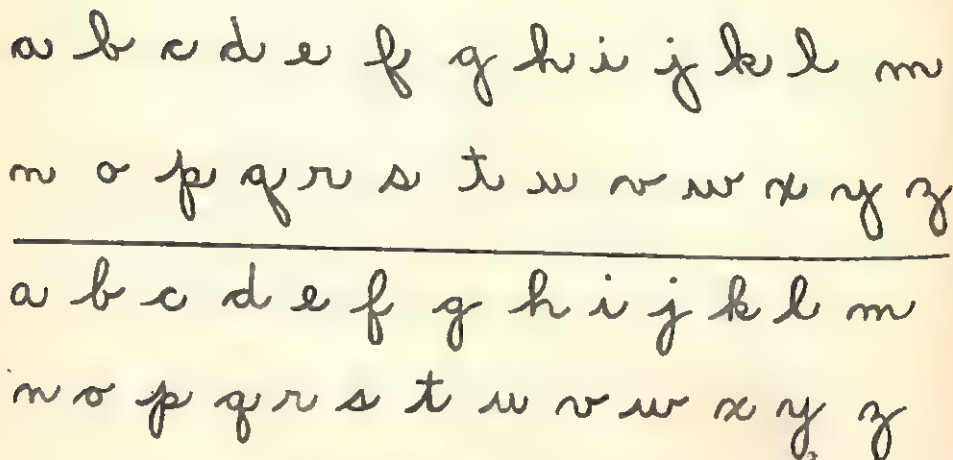 a b c d e f g h i j k l m
n o p q r s t u v w x y z
a b c d e f g h i j k l m
n o p q r s t u v w x y z